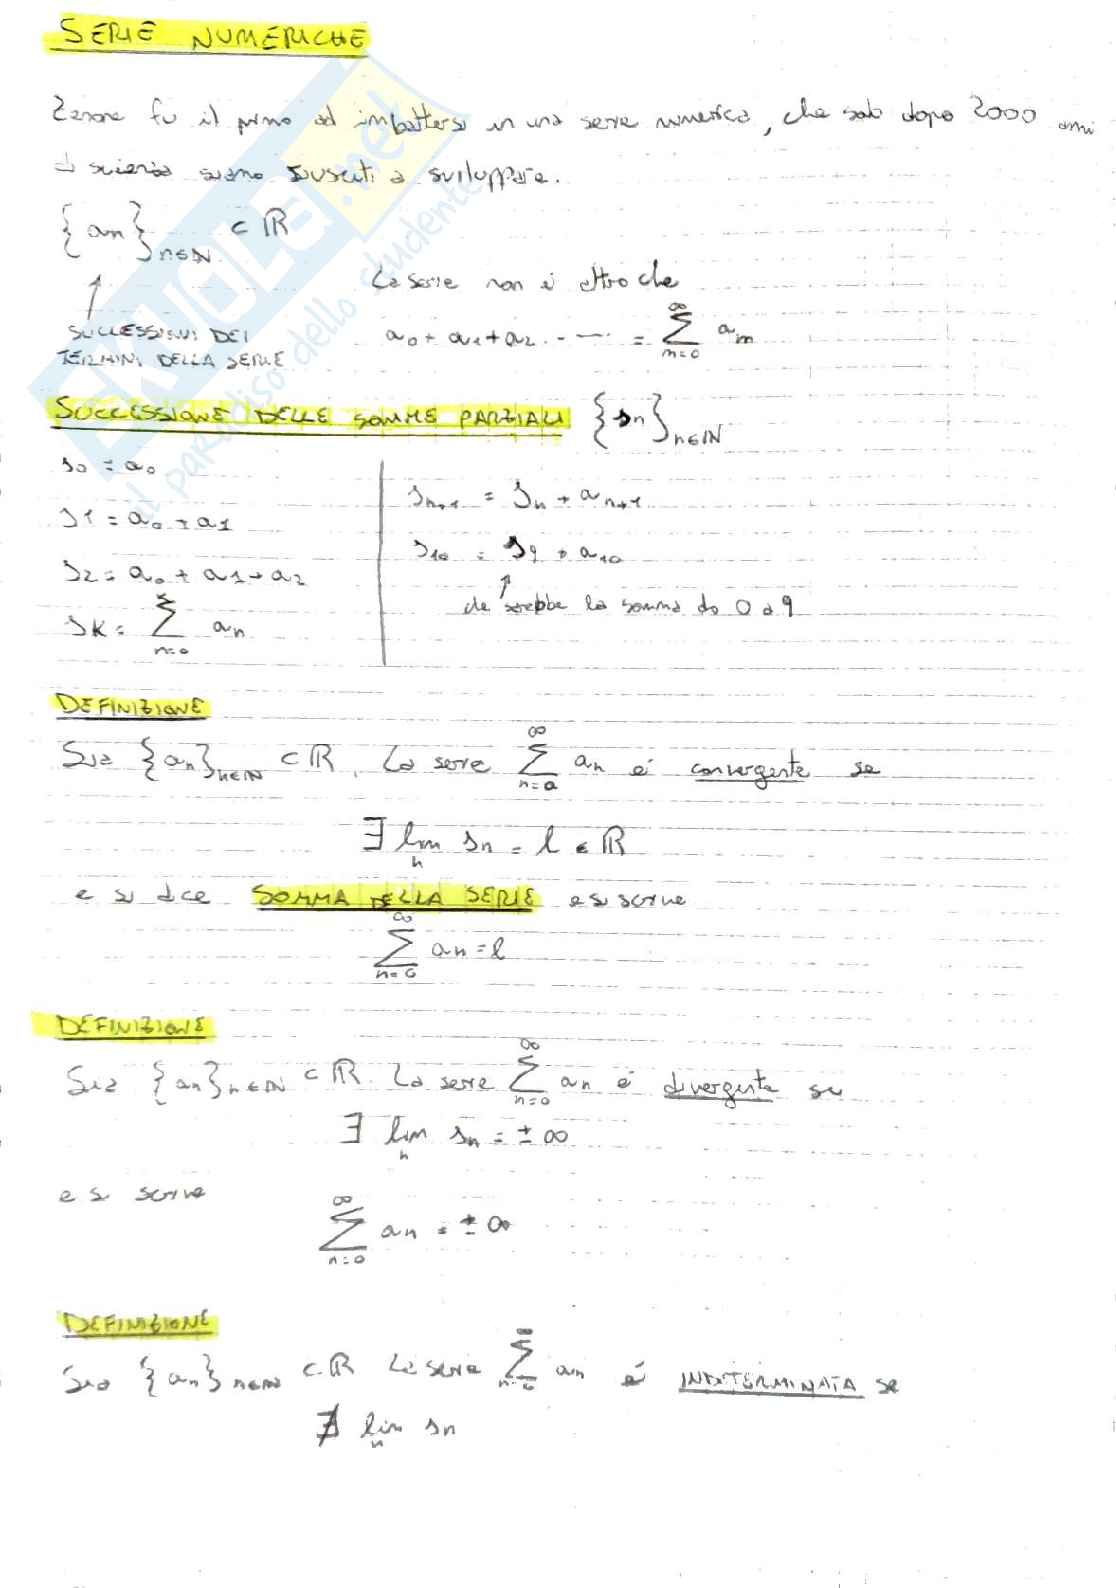 SERIE NUMERICHE
Zenone fu il primo ad imbattersi in una serie numerica, che solo dopo 2000 anni
di scienza siamo riusciti a sviluppare.
{an}n∈ℕ ⊂ ℝ
La serie non è altro che
SUCCESSIONI DEI
TERMINI DELLA SERIE
a0 + a1 + a2 ..... = ∑_{n=0}^{∞} an
SUCCESSIONE DELLE SOMME PARZIALI {sn}n∈ℕ
s0 = a0
s1 = a0 + a1
s2 = a0 + a1 + a2
sk = ∑_{n=0} an
sn+1 = sn + an+1
s10 = s9 + a10
che sarebbe la somma da 0 a 9
DEFINIZIONE
Sia {an}n∈ℕ ⊂ ℝ. La serie ∑_{n=0}^{∞} an é convergente se
∃ lim_n sn = l ∈ ℝ
e si dice SOMMA DELLA SERIE e si scrive
∑_{n=0}^{∞} an = l
DEFINIZIONE
Sia {an}n∈ℕ ⊂ ℝ. La serie ∑_{n=0}^{∞} an é divergente se
∃ lim_n sn = ± ∞
e si scrive
∑_{n=0}^{∞} an = ± ∞
DEFINIZIONE
Sia {an}n∈ℕ ⊂ ℝ La serie ∑_{n=0}^{∞} an é INDETERMINATA se
∄ lim_n sn
SKUOLA.net
il paradiso dello studente